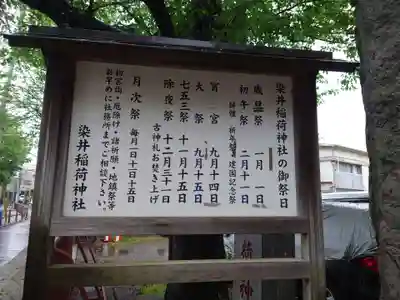 染井稲荷神社の御祭日
歳旦祭 一月一日
初午祭 二月十一日
併催 祈年祭 建国記念祭
宵宮 九月十四日
大祭 九月十五日
七五三祭 十一月十五日
除夜祭 十二月三十一日
古神札お焚き上げ
月次祭 毎月一日・十五日
初宮詣・厄除け・諸祈願・地鎮祭等
お早めに社務所までご相談下さい。
染井稲荷神社
荷神